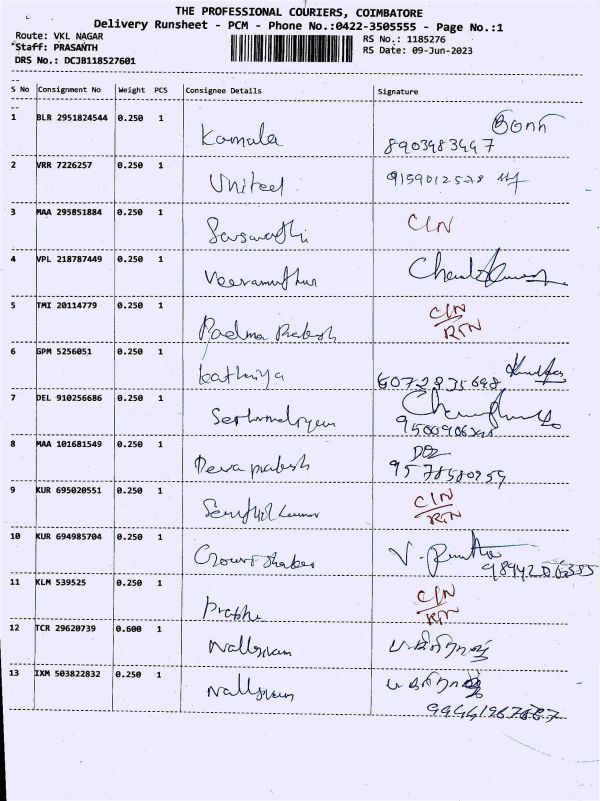 THE PROFESSIONAL COURIERS, COIMBATORE
Delivery Runsheet - PCM - Phone No.:0422-3505555 - Page No.:1
Route: VKL NAGAR
Staff: PRASANTH
DRS No.: DCJB118527601
RS No.: 1185276
RS Date: 09-Jun-2023
S No Consignment No Weight PCS Consignee Details Signature
1 BLR 2951824544 0.250 1
Kamala 8903483497
2 VRR 7226257 0.250 1
United 9159012528
3 MAA 295851884 0.250 1 CIN
4 VPL 218787449 0.250 1
5 TMI 20114779 0.250 1 CIN
Padma Prakash RTN
6 GPM 5256051 0.250 1
7 DEL 910256686 0.250 1
8 MAA 101681549 0.250 1
Deva prakash
9 KUR 695020551 0.250 1 CIN
Senthil Kumar RTN
10 KUR 694985704 0.250 1
11 KLM 539525 0.250 1 CIN
Prabhu RTN
12 TCR 29620739 0.600 1
13 IXM 503822832 0.250 1